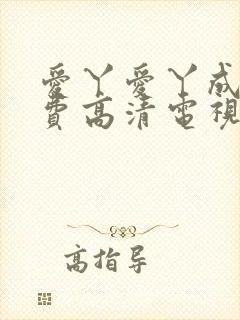 愛丫愛丫成
費高清電視
高指导